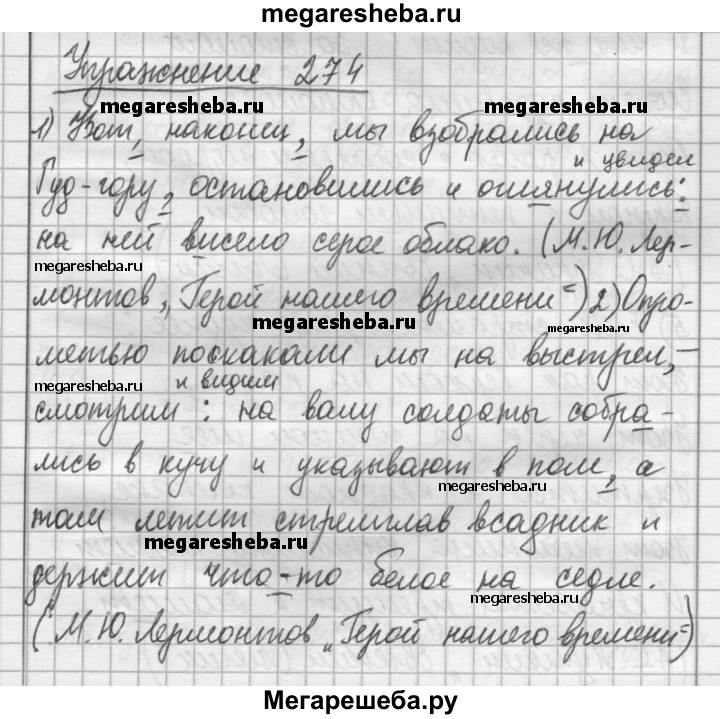 megaresheba.ru
Упражнение 274
megaresheba.ru
1) Вот, наконец, мы взобрались на
и увидели
Гуд-гору, остановились и оглянулись:
на ней висело серое облако. (М.Ю. Лер-
megaresheba.ru
монтов, „Герой нашего времени") 2) Опро-
megaresheba.ru
метью поскакали мы на выстрел, –
megaresheba.ru
и видим
смотрим: на валу солдаты собра-
лись в кучу и указывают в поле, а
megaresheba.ru
там летит стремглав всадник и
megaresheba.ru
держит что-то белое на седле.
megaresheba.ru
(М.Ю. Лермонтов „Герой нашего времени")
Мегарешеба.ру